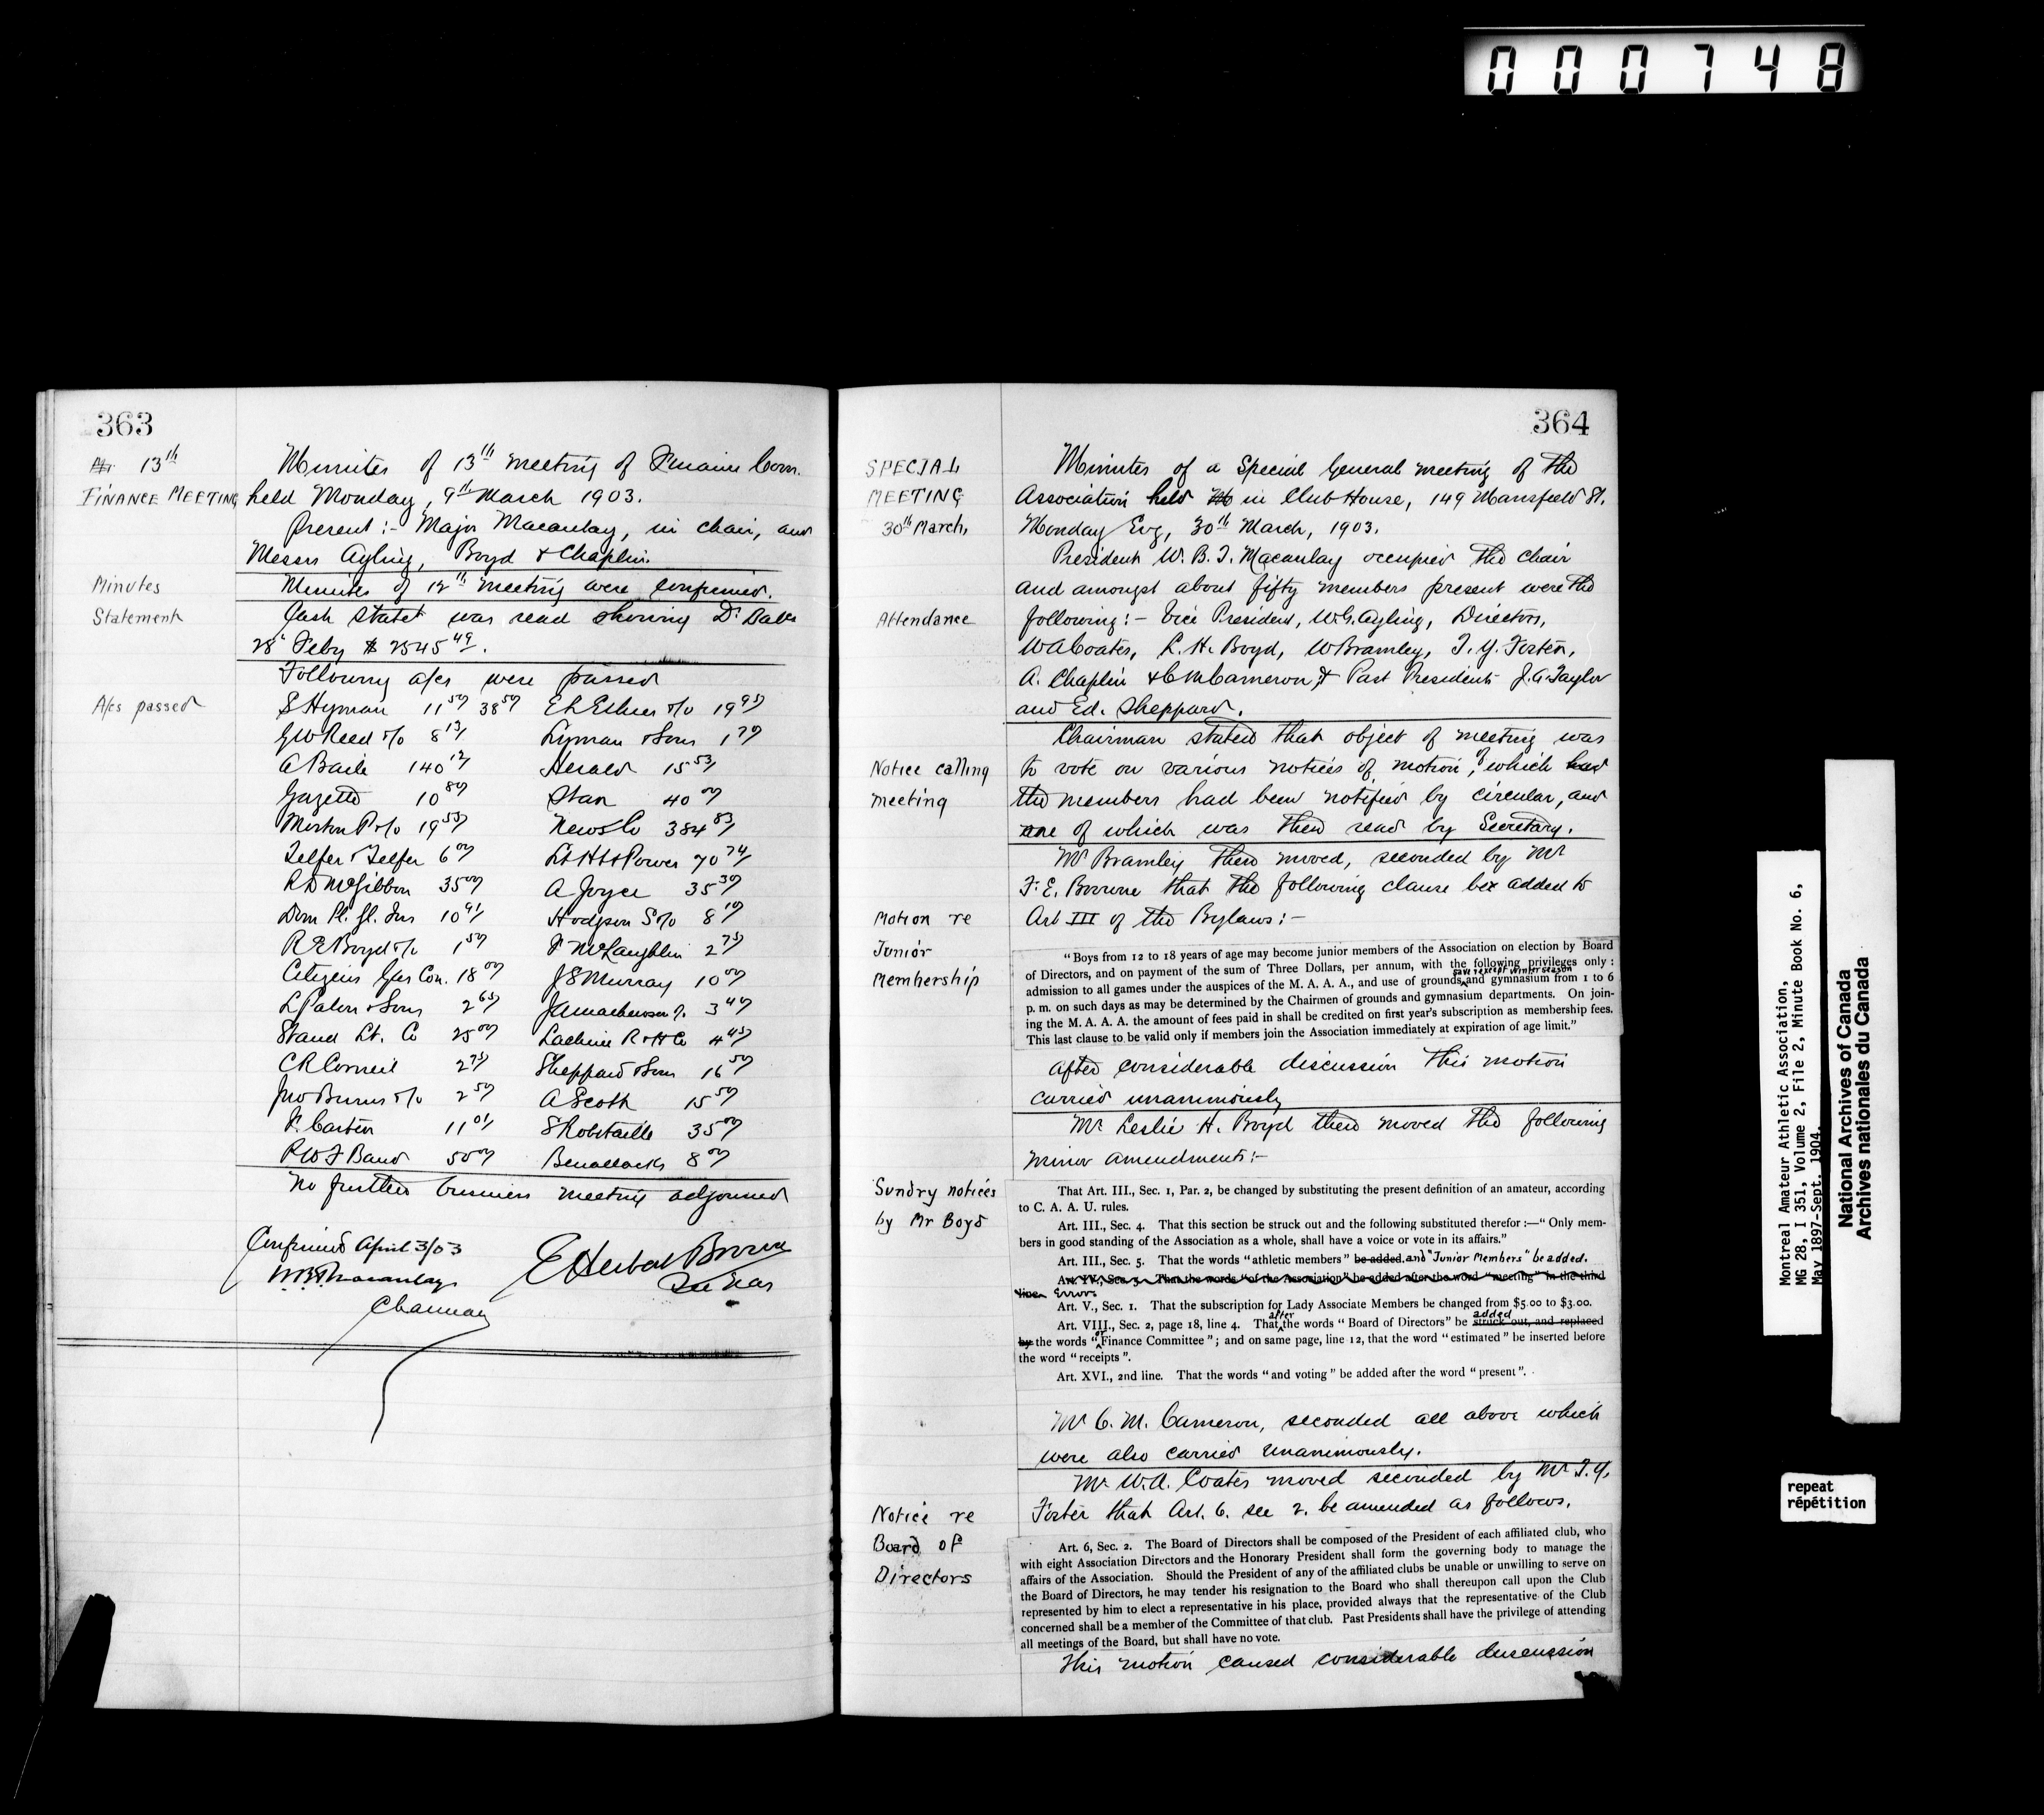 000748
363
13th
FINANCE MEETING
Minutes of 13th meeting of Finance Com.
held Monday, 9th March 1903.
Present:- Major Macaulay, in chair, and
Messrs Ayling, Boyd & Chaplin.
Minutes
Minutes of 12th meeting were confirmed.
Statement
Cash statet was read showing Dr Balce
28 Feby $2545 49.
Following a/cs were passed
A/cs passed
S Hyman 11 50 38 50
G W Reed & Co 8 13
A Baile 140 12
Gazette 10 80
Morton P & Co 19 53
Telfer & Telfer 6 00
R D McGibbon 35 00
Dom Pl. Gl. Ins 10 91
R E Boyd & Co 1 50
Citizens Gas Con. 18 00
L Paton & Sons 2 65
Stand Lt. Co 25 00
C R Corneil 2 75
Jno Burns & Co 2 50
F. Carten 11 01
P W F Band 50 00
19 95
Lyman & Sons 1 70
Herald 15 53
Star 40 00
News Co 384 83
Lt Ht & Power 70 74
A Joyce 35 30
Hodgson S & Co 8 10
F McLaughlin 2 75
J S Murray 10 00
3 40
Lachine R & H Co 4 45
Sheppard & Sons 16 50
A Scott 15 50
S Robitaille 35 00
Benallacks 8 00
No further business meeting adjourned
Confirmed April 3/03
W.B.T. Macaulay
Chairman
E Herbert Brown
Sec Treas
364
SPECIAL
MEETING
30th March,
Minutes of a Special General meeting of the
Association held in Club House, 149 Mansfield St.
Monday Evg, 30th March, 1903.
President W. B. T. Macaulay occupied the chair
and amongst about fifty members present were the
Attendance
following:- Vice President, W.G. Ayling, Directors,
W A Coates, L. H. Boyd, W Bramley, T. Y. Foster,
A. Chaplin & C M Cameron, & Past Presidents J. A. Taylor
and Ed. Sheppard.
Chairman stated that object of meeting was
Notice calling
meeting
to vote on various notices of motion, of which had
the members had been notified by circular, and
one of which was then read by Secretary.
Mr Bramley then moved, seconded by Mr
F. E. Bourne that the following clause be added to
Motion re
Junior
Membership
Art III of the Bylaws:-
"Boys from 12 to 18 years of age may become junior members of the Association on election by Board
of Directors, and on payment of the sum of Three Dollars, per annum, with the following privileges only:
save & except winter season
admission to all games under the auspices of the M. A. A. A., and use of grounds and gymnasium from 1 to 6
p. m. on such days as may be determined by the Chairmen of grounds and gymnasium departments. On join-
ing the M. A. A. A. the amount of fees paid in shall be credited on first year's subscription as membership fees.
This last clause to be valid only if members join the Association immediately at expiration of age limit."
After considerable discussion this motion
carried unanimously
Mr Leslie H. Boyd then moved the following
minor amendments:-
Sundry notices
by Mr Boyd
That Art. III., Sec. 1, Par. 2, be changed by substituting the present definition of an amateur, according
to C. A. A. U. rules.
Art. III., Sec. 4. That this section be struck out and the following substituted therefor:—"Only mem-
bers in good standing of the Association as a whole, shall have a voice or vote in its affairs."
Art. III., Sec. 5. That the words "athletic members" be added. and "Junior Members" be added.
Art. IV., Sec. 3. That the words "of the Association" be added after the word "meeting" in the third
line. Error.
Art. V., Sec. 1. That the subscription for Lady Associate Members be changed from $5.00 to $3.00.
Art. VIII., Sec. 2, page 18, line 4. That after the words "Board of Directors" be added struck out, and replaced
by the words "or Finance Committee"; and on same page, line 12, that the word "estimated" be inserted before
the word "receipts".
Art. XVI., 2nd line. That the words "and voting" be added after the word "present".
Mr C. M. Cameron, seconded all above which
were also carried unanimously.
Mr W. A. Coates moved seconded by Mr T. Y.
Foster that Art. 6. sec 2. be amended as follows.
Notice re
Board of
Directors
Art. 6, Sec. 2. The Board of Directors shall be composed of the President of each affiliated club, who
with eight Association Directors and the Honorary President shall form the governing body to manage the
affairs of the Association. Should the President of any of the affiliated clubs be unable or unwilling to serve on
the Board of Directors, he may tender his resignation to the Board who shall thereupon call upon the Club
represented by him to elect a representative in his place, provided always that the representative of the Club
concerned shall be a member of the Committee of that club. Past Presidents shall have the privilege of attending
all meetings of the Board, but shall have no vote.
This motion caused considerable discussion
Montreal Amateur Athletic Association,
MG 28, I 351, Volume 2, File 2, Minute Book No. 6,
May 1897-Sept. 1904.
National Archives of Canada
Archives nationales du Canada
repeat
répétition